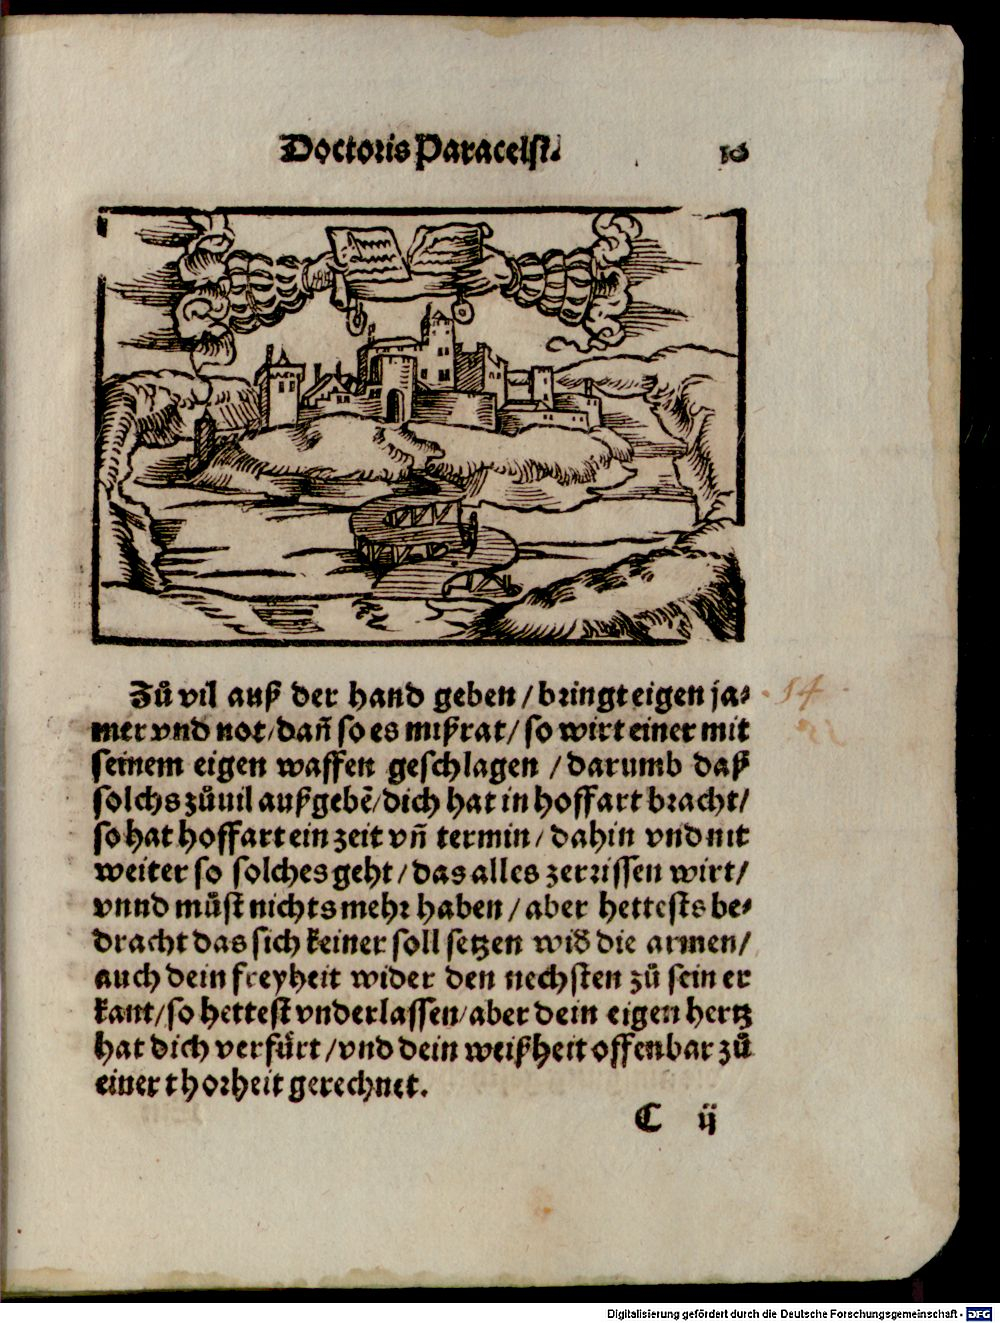 Doctoris Paracelsi. 10
Zů vil auß der hand geben / bringt eigen ja⸗
mer vnd not / dañ so es mißrat / so wirt einer mit
seinem eigen waffen geschlagen / darumb daß
solchs zůuil außgebẽ / dich hat in hoffart bracht /
so hat hoffart ein zeit vñ termin / dahin vnd nit
weiter so solches geht / das alles zerrissen wirt /
vnnd můst nichts mehr haben / aber hettests be⸗
dracht das sich keiner soll setzen wid̕ die armen /
auch dein freyheit wider den nechsten zů sein er
kant / so hettest vnderlassen / aber dein eigen hertz
hat dich verfůrt / vnd dein weißheit offenbar zů
einer thorheit gerechnet.
C ij
54
Digitalisierung gefördert durch die Deutsche Forschungsgemeinschaft - DFG